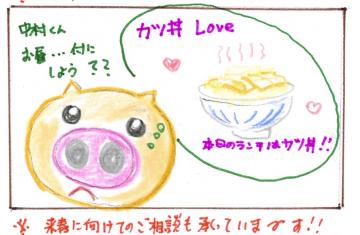 中村くん
お昼…何に
しよう??
カツ丼 Love
本日のランチはカツ丼!!
※ 来春に向けてのご相談も承っています!!